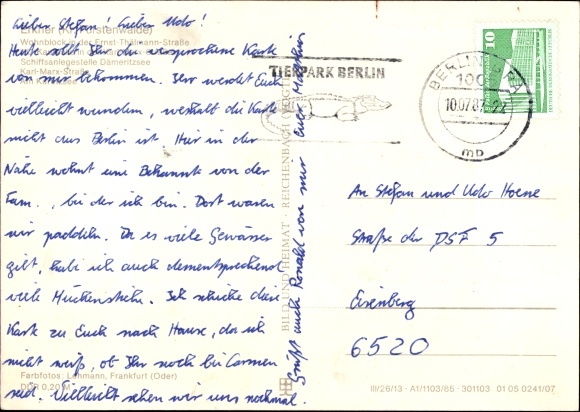 Lieber Stefan! Lieber Udo!
Heute sollt Ihr die versprochene Karte
von mir bekommen. Ihr werdet Euch
vielleicht wundern, weshalb die Karte
nicht aus Berlin ist. Hier in der
Nähe wohnt eine Bekannte von der
Fam., bei der ich bin. Dort waren
wir paddeln. Da es viele Gewässer
gibt, habe ich auch dementsprechend
viele Mückenstiche. Ich schicke diese
Karte zu Euch nach Hause, da ich
nicht weiß, ob Ihr noch bei Carmen
seid. Vielleicht sehen wir uns nochmal.
Grüßt auch Ronald von mir Euer Matthias
Erkner (Kr. Fürstenwalde)
Wohnblock in der Ernst-Thälmann-Straße
Schiffsanlegestelle Dämeritzsee
Karl-Marx-Straße
Farbfotos: Lehmann, Frankfurt (Oder)
DDR 0,20 M
BILD UND HEIMAT · REICHENBACH
TIERPARK BERLIN
BERLIN
10.07.87
mb
10
An Stefan und Udo Hoene
Straße der DSF 5
Eisenberg
6520
III/26/13 · A1/1103/85 · 301103 01 05 0241/07